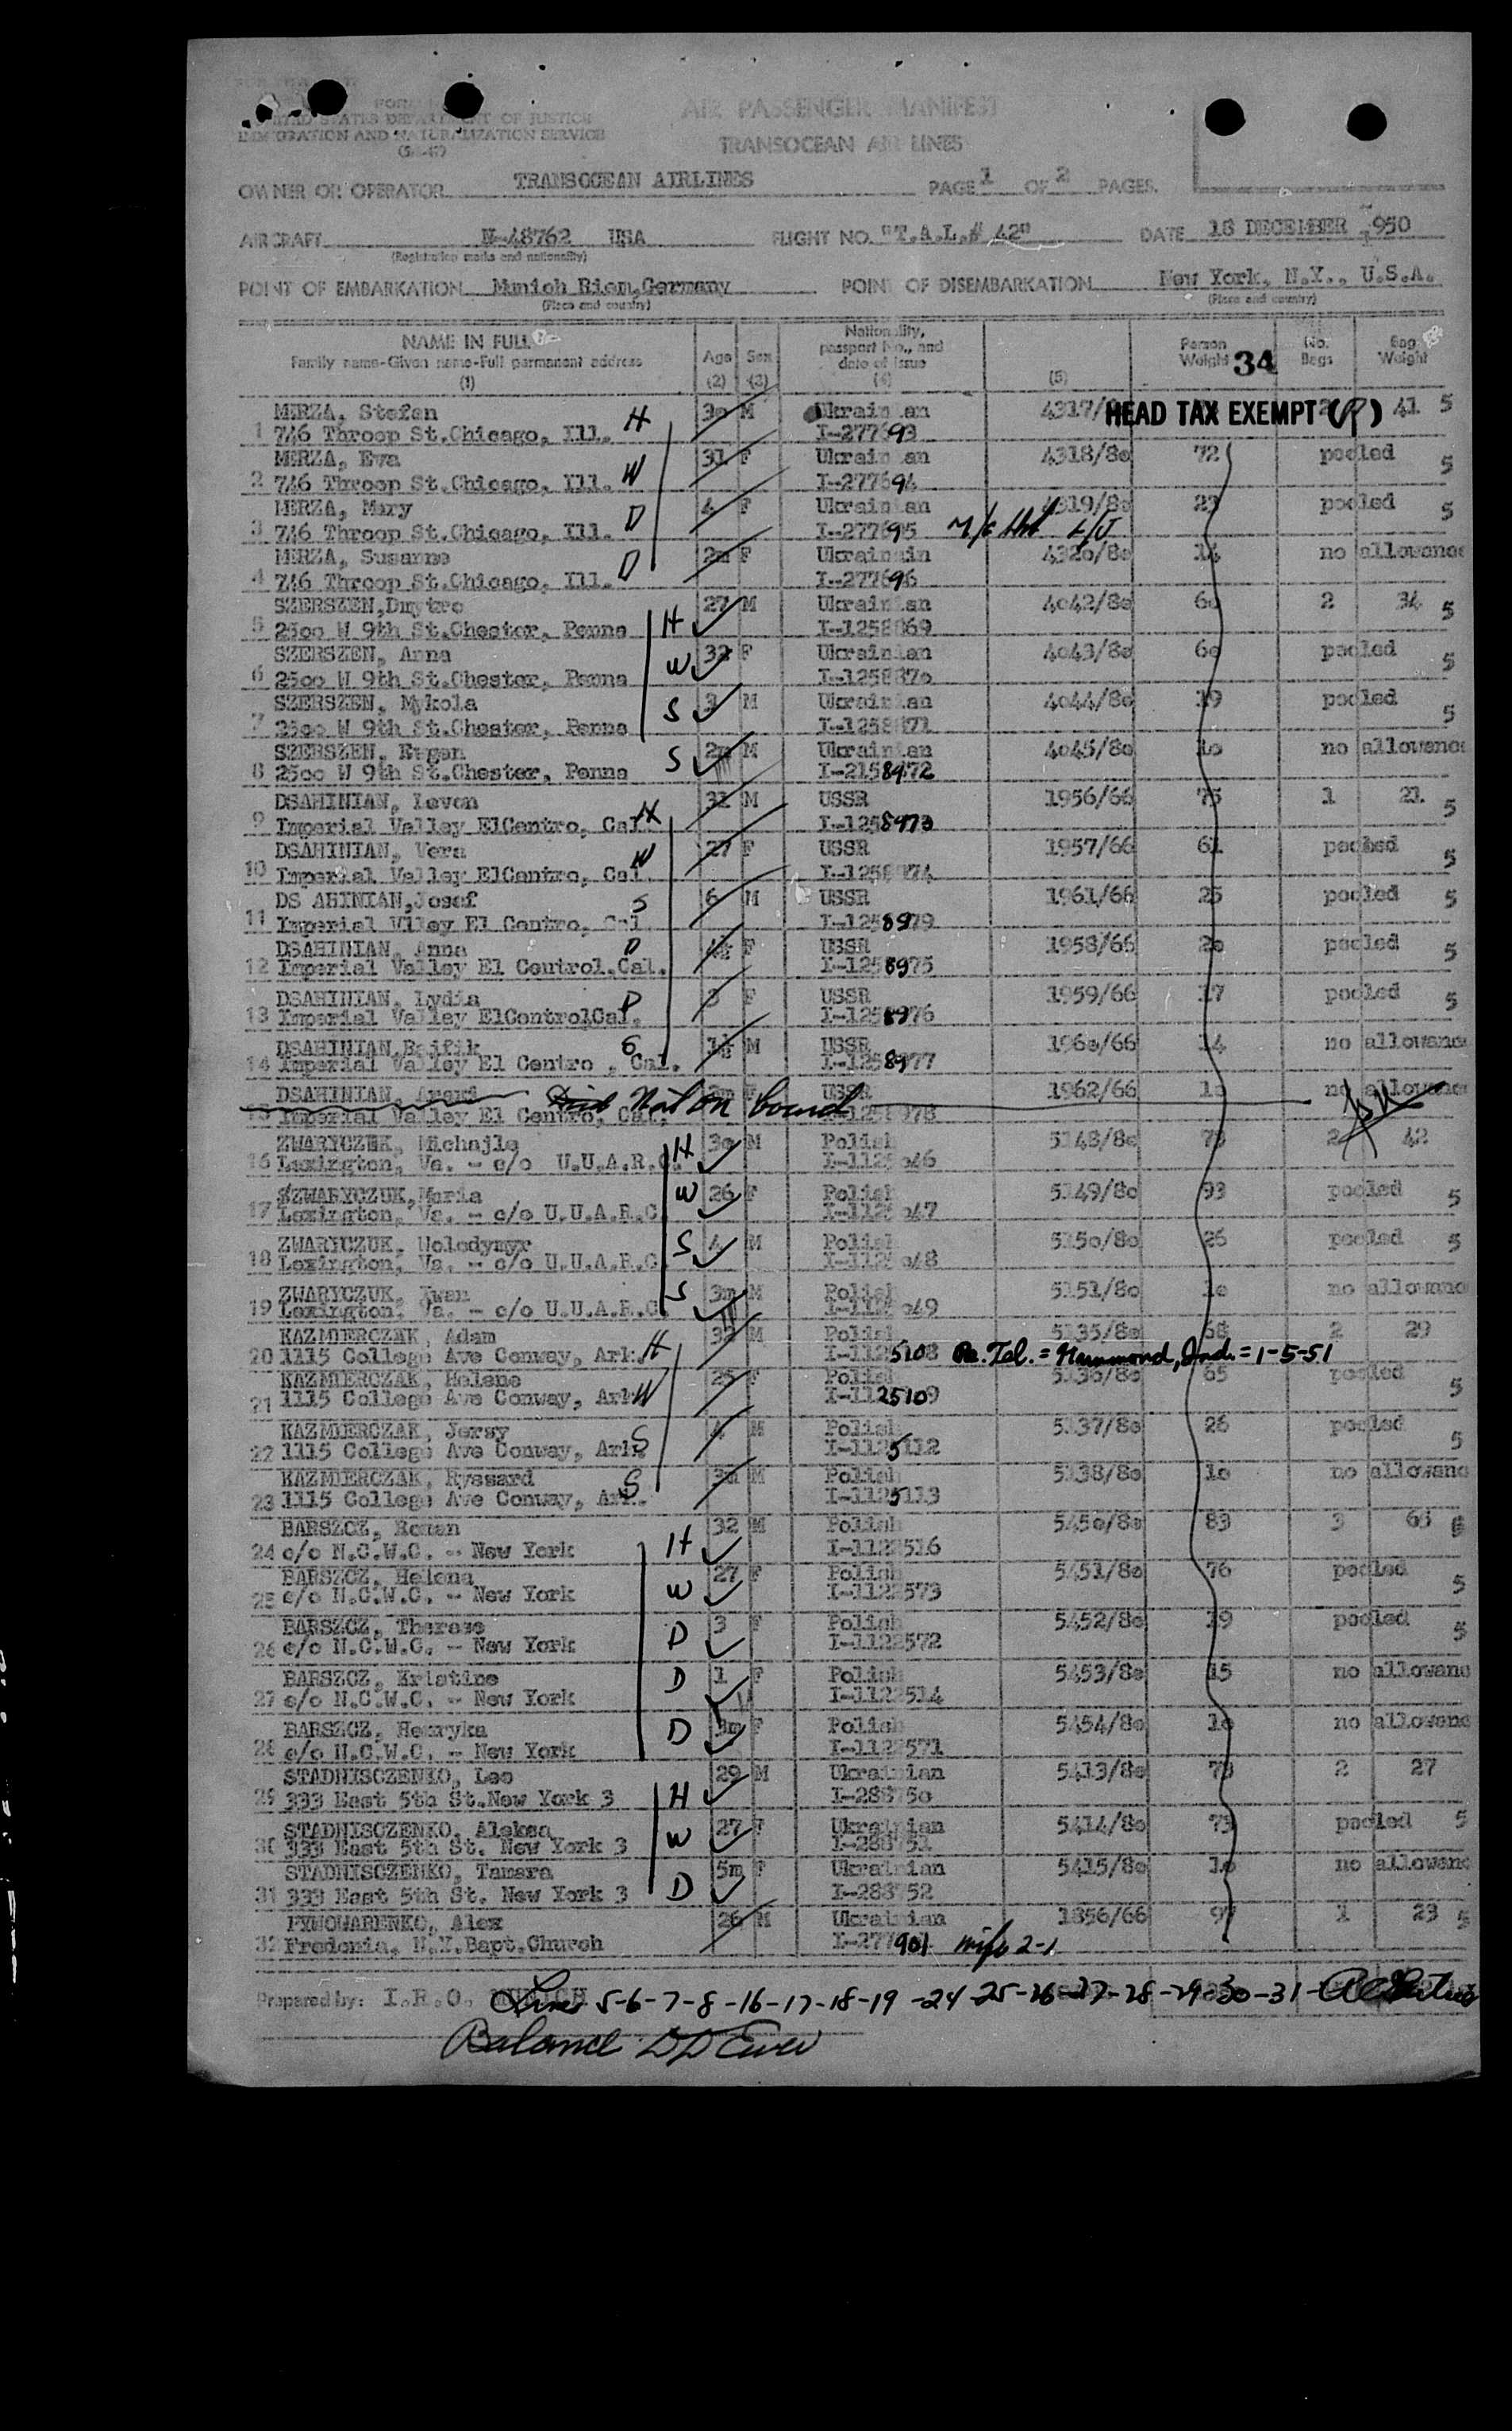 FORM
UNITED STATES DEPARTMENT OF JUSTICE
IMMIGRATION AND NATURALIZATION SERVICE
AIR PASSENGER MANIFEST
TRANSOCEAN AIR LINES
OWNER OR OPERATOR TRANSOCEAN AIRLINES PAGE 1 OF 2 PAGES.
AIRCRAFT N-48762 USA FLIGHT NO. "T.A.L.# 42" DATE 18 DECEMBER 1950
(Registration marks and nationality)
POINT OF EMBARKATION Munich Riem, Germany POINT OF DISEMBARKATION New York, N.Y., U.S.A.
(Place and country) (Place and country)
NAME IN FULL Age Sex Nationality, passport No., and date of issue Person Weight 34 No. Bags Bag Weight
Family name-Given name-Full permanent address
(1) (2) (3) (4) (5)
MERZA, Stefan H 3o M Ukrainian 4317/8o HEAD TAX EXEMPT (P) 41 5
1 746 Throop St.Chicago, Ill. I-277693
MERZA, Eva W 31 F Ukrainian 4318/8o 72 pooled 5
2 746 Throop St.Chicago, Ill. I-277694
MERZA, Mary D 4 F Ukrainian 4319/8o 23 pooled 5
3 746 Throop St.Chicago, Ill. I-277695
MERZA, Susanne D 2m F Ukrainain 432o/8o 14 no allowance
4 746 Throop St.Chicago, Ill. I-277696
SZERSZEN,Dmytro H 27 M Ukrainian 4o42/8o 6o 2 34 5
5 25oo W 9th St.Chester, Penna I-1258869
SZERSZEN, Anna W 32 F Ukrainian 4o43/8o 6o pooled 5
6 25oo W 9th St.Chester, Penna I-125887o
SZERSZEN, Mykola S 3 M Ukrainian 4o44/8o 19 pooled 5
7 25oo W 9th St.Chester, Penna I-1258871
SZERSZEN, Eugen S 2m M Ukrainian 4o45/8o 1o no allowance
8 25oo W 9th St.Chester, Penna I-2158972
DSAHINIAN, Levon H 31 M USSR 1956/66 75 1 21 5
9 Imperial Valley ElCentro, Cal. I-1258973
DSAHINIAN, Vera W 27 F USSR 1957/66 61 pooled 5
10 Imperial Valley ElCentro, Cal. I-1258974
DS AHINIAN,Josef S 6 M USSR 1961/66 25 pooled 5
11 Imperial Vlley El Centro, Cal I-1258979
DSAHINIAN, Anna D 4½ F USSR 1958/66 2o pooled 5
12 Imperial Valley El Centrol.Cal. I-1258975
DSAHINIAN, Lydia D 3 F USSR 1959/66 17 pooled 5
13 Imperial Valley ElCentrol,Cal. I-1258976
DSAHINIAN,Rejfik S 1½ M USSR 196o/66 14 no allowance
14 Imperial Valley El Centro , Cal. I-1258977
DSAHINIAN, Did Not On board F USSR 1962/66 1o no allowance
15 Imperial Valley El Centro, Cal. I-1258978
ZWARYCZUK, Michajlo H 3o M Polish 5148/8o 73 2 42
16 Lexington, Va. - c/o U.U.A.R.C. I-1125o46
SZWARYCZUK,Maria W 26 F Polish 5149/8o 93 pooled 5
17 Lexington, Va. - c/o U.U.A.R.C I-1125o47
ZWARYCZUK, Wolodymyr S 4 M Polish 515o/8o 26 pooled 5
18 Lexington, Va. - c/o U.U.A.R.C I-1125o48
ZWARYCZUK, Iwan S 3m M Polish 5151/8o 1o no allowance
19 Lexington, Va. - c/o U.U.A.R.C I-1125o49
KAZMIERCZAK, Adam H 32 M Polish 5135/8o 68 2 29
20 1115 College Ave Conway, Ark. I-1125108 Re. Tel. = Hammond, Ind. = 1-5-51
KAZMIERCZAK, Helene W 25 F Polish 5136/8o 65 pooled 5
21 1115 College Ave Conway, Ark. I-1125109
KAZMIERCZAK, Jersy S 4 M Polish 5137/8o 26 pooled 5
22 1115 College Ave Conway, Ark. I-1125112
KAZMIERCZAK, Ryszard S 3m M Polish 5138/8o 1o no allowanc
23 1115 College Ave Conway, Ark. I-1125113
BARSZCZ, Roman H 32 M Polish 545o/8o 83 3 63
24 c/o N.C.W.C. - New York I-1122516
BARSZCZ, Helena W 27 F Polish 5451/8o 76 pooled 5
25 c/o N.C.W.C. - New York I-1122573
BARSZCZ, Therese D 3 F Polish 5452/8o 19 pooled 5
26 c/o N.C.W.C. - New York I-1122572
BARSZCZ, Kristine D 1 F Polish 5453/8o 15 no allowanc
27 c/o N.C.W.C. - New York I-1122514
BARSZCZ, Henryka D 3m F Polish 5454/8o 1o no allowanc
28 c/o N.C.W.C. - New York I-1122571
STADNISCZENKO, Leo H 29 M Ukrainian 5413/8o 73 2 27
29 333 East 5th St.New York 3 I-28875o
STADNISCZENKO, Aleksa W 27 F Ukrainian 5414/8o 73 pooled 5
30 333 East 5th St. New York 3 I-288751
STADNISCZENKO, Tamara D 5m F Ukrainian 5415/8o 1o no allowanc
31 333 East 5th St. New York 3 I-288752
PYWOWARENKO, Alex 26 M Ukrainian 1856/66 1 23 5
32 Fredonia, N.Y.Bapt.Church I-277901
Prepared by: I.R.O. MUNICH Lines 5-6-7-8-16-17-18-19-24-25-26-27-28-29-30-31-
Balance